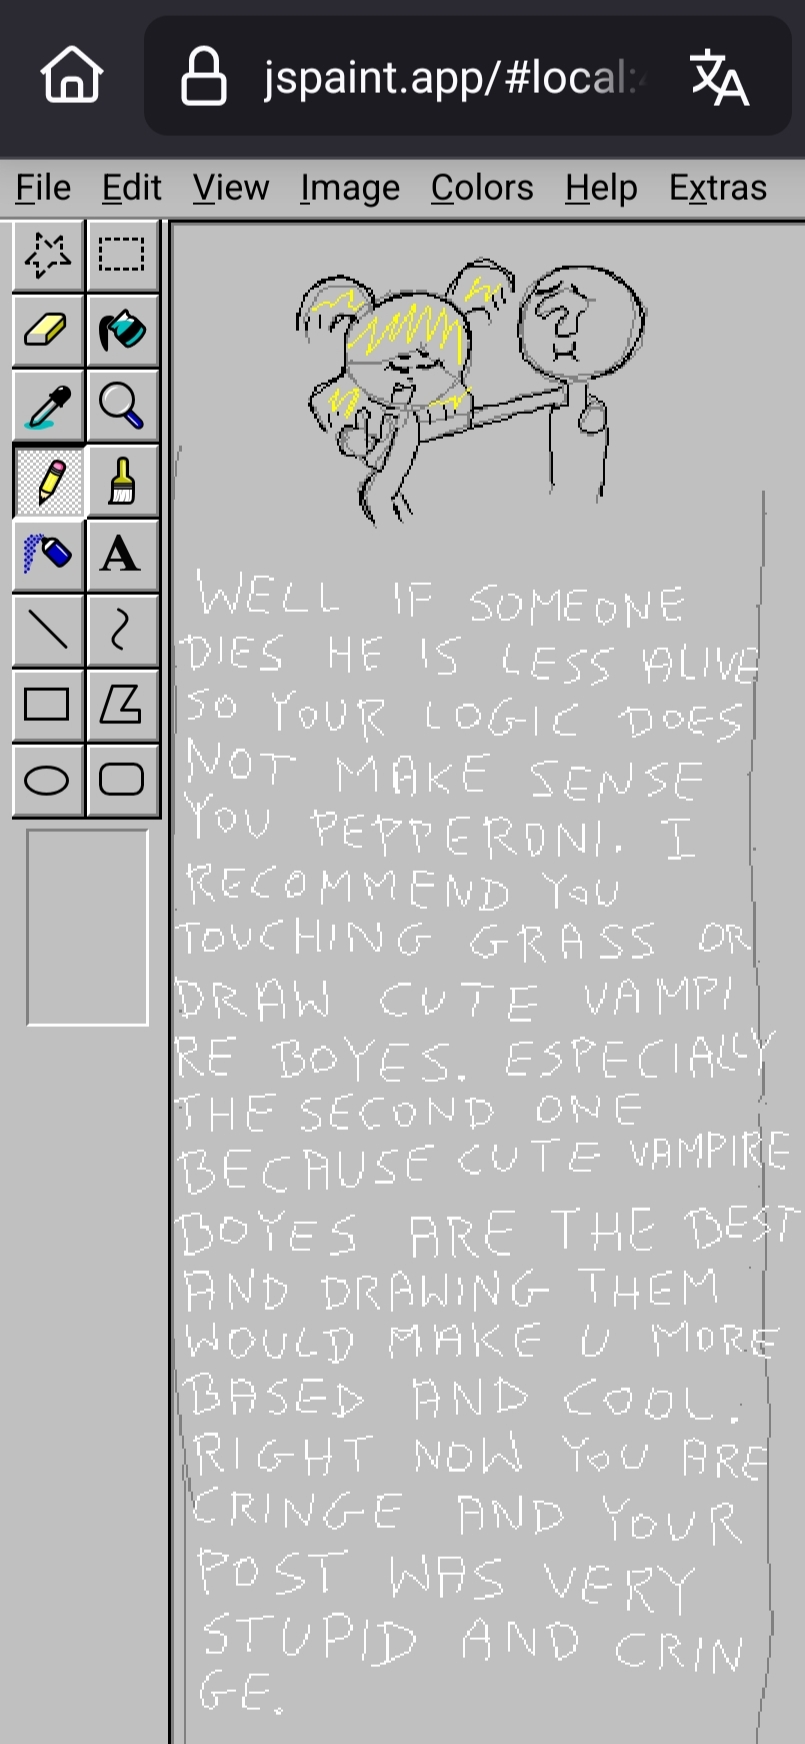 jspaint.app/#local:
File Edit View Image Colors Help Extras
A
WELL IF SOMEONE
DIES HE IS LESS ALIVE
SO YOUR LOGIC DOES
NOT MAKE SENSE
YOU PEPPERONI. I
RECOMMEND YOU
TOUCHING GRASS OR
DRAW CUTE VAMPI
RE BOYES. ESPECIALLY
THE SECOND ONE
BECAUSE CUTE VAMPIRE
BOYES ARE THE BEST
AND DRAWING THEM
WOULD MAKE U MORE
BASED AND COOL.
RIGHT NOW YOU ARE
CRINGE AND YOUR
POST WAS VERY
STUPID AND CRIN
GE.